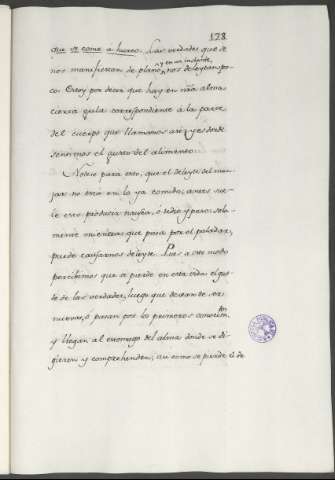 128
que se come a huevo. Las verdades que se
nos manifiestan de plano, y en un instante, nos deleytan po-
co. Estoy por decir que hay en nra alma
cierta
correspondiente á la parte
del cuerpo que llamamos
y es donde
sentimos el gusto del alimento.
Notese para esto, que el deleyte del man-
jar no está en lo ya comido, antes sue-
le esto producir nausea, ó tedio y peso: sola-
mente mientras que pasa por el paladar,
puede causarnos deleyte. Pues a este modo
percibimos que se pierde en esta vida el gus-
to de las verdades, luego que dexan de ser
nuevas, ó pasan por los primeros conocim.tos
y llegan al estomago del alma donde se di-
gieren y comprehenden; asi como se pierde el de